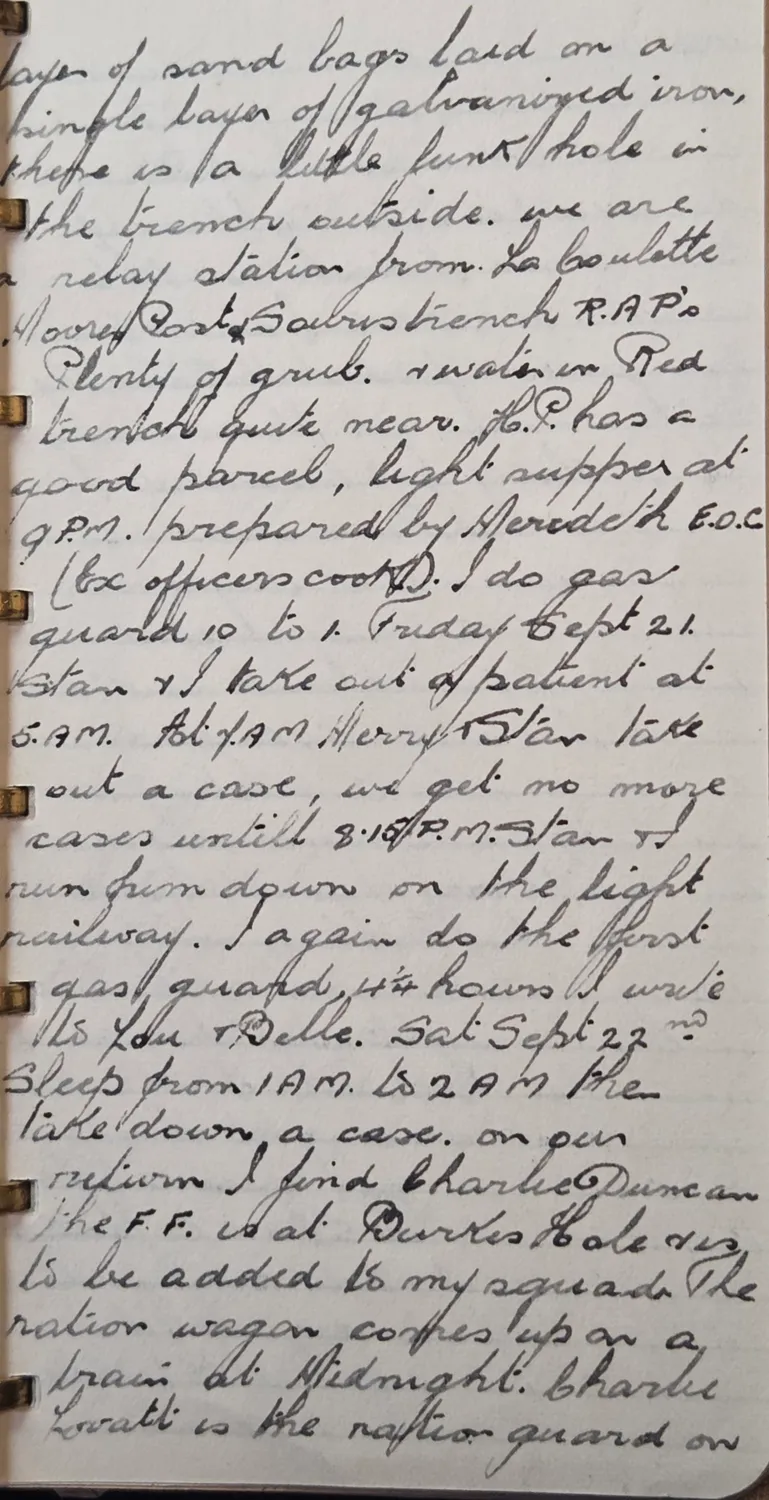 layer of sand bags laid on a
single layer of galvanized iron,
there is a little funk hole in
the trench outside. we are
a relay station from La Coulette
Moores Post & Souris trench R.A.P's
Plenty of grub. & water in Red
trench quite near. H.P. has a
good parcel, light supper at
9 P.M. prepared by Meredith E.O.C
(Ex officers cook). I do gas
guard 10 to 1. Friday Sept 21.
Stan & I take out a patient at
5. A.M. At 7. AM Merry & Stan take
out a case, we get no more
cases untill 8.15 P.M. Stan & I
run him down on the light
railway. I again do the first
gas guard, 4¼ hours I write
to Lou & Belle. Sat Sept 22nd
Sleep from 1 AM. to 2 AM then
take down a case. on our
return I find Charlie Duncan
the F.F. is at Burkes Hole & is
to be added to my squad. The
ration wagon comes up on a
train at Midnight. Charlie
Lovatt is the ration guard on